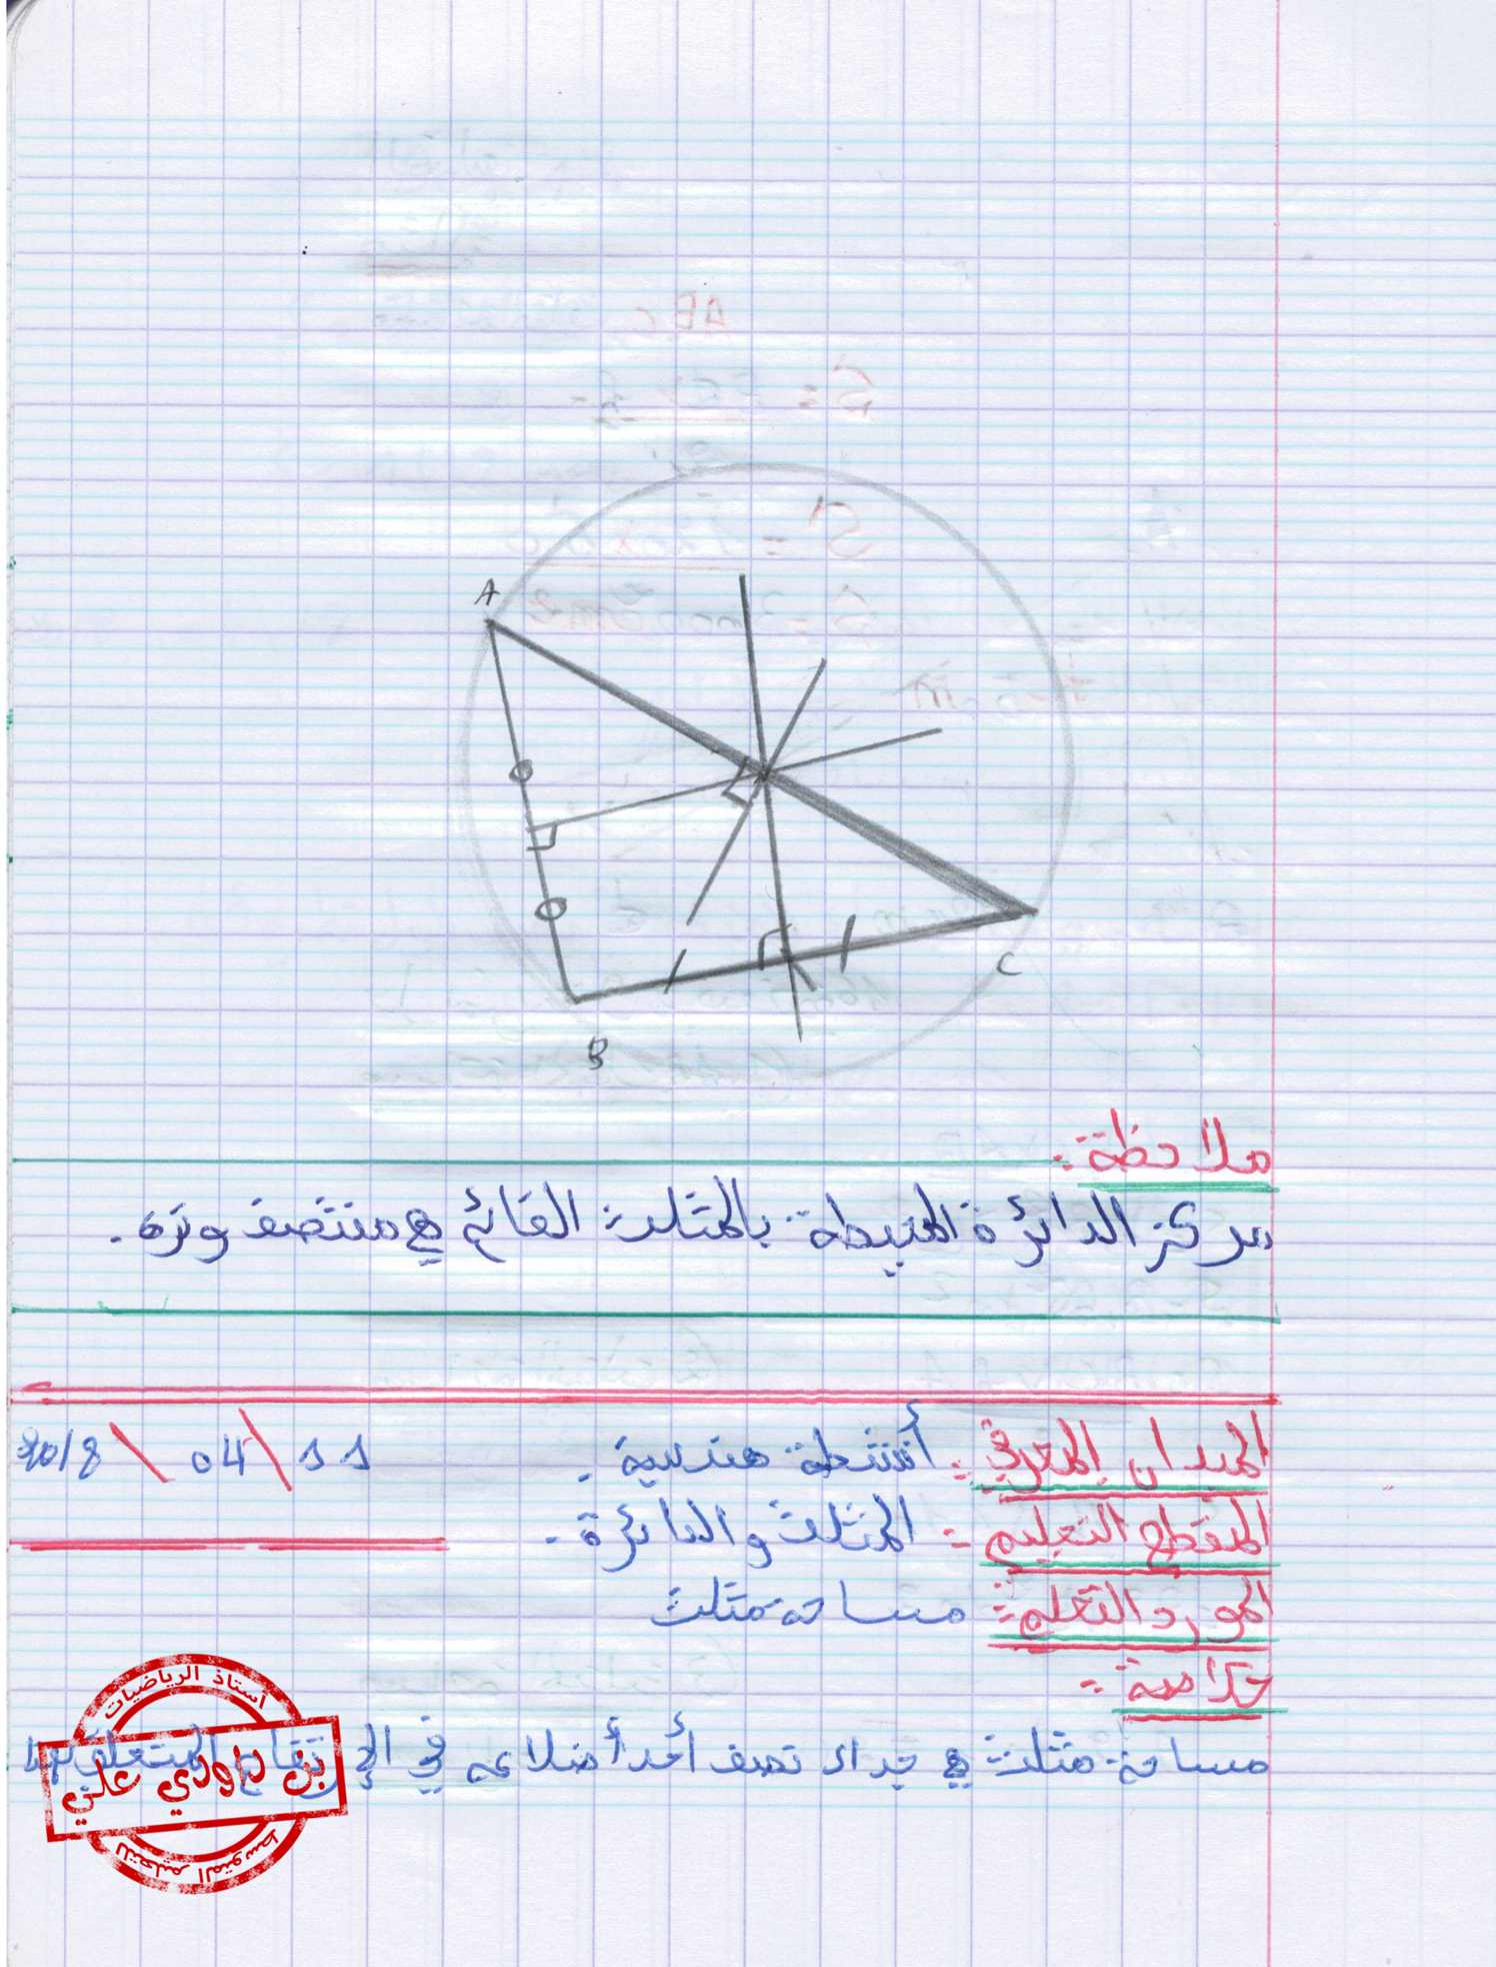 A
C
B
ملاحظة :
مركز الدائرة المحيطة بالمثلث القائم هي منتصف وتره .
الميدان المعرفي : أنشطة هندسية . 11 / 04 / 2018
المقطع التعليمي : المثلث والدائرة .
المورد التعلمي : مساحة مثلث
خلاصة :
مساحة مثلث هي جداء نصف أحد أضلاعه في الإرتفاع المتعلق بهذا
أستاذ الرياضيات
بن داودي علي
للتعليم المتوسط